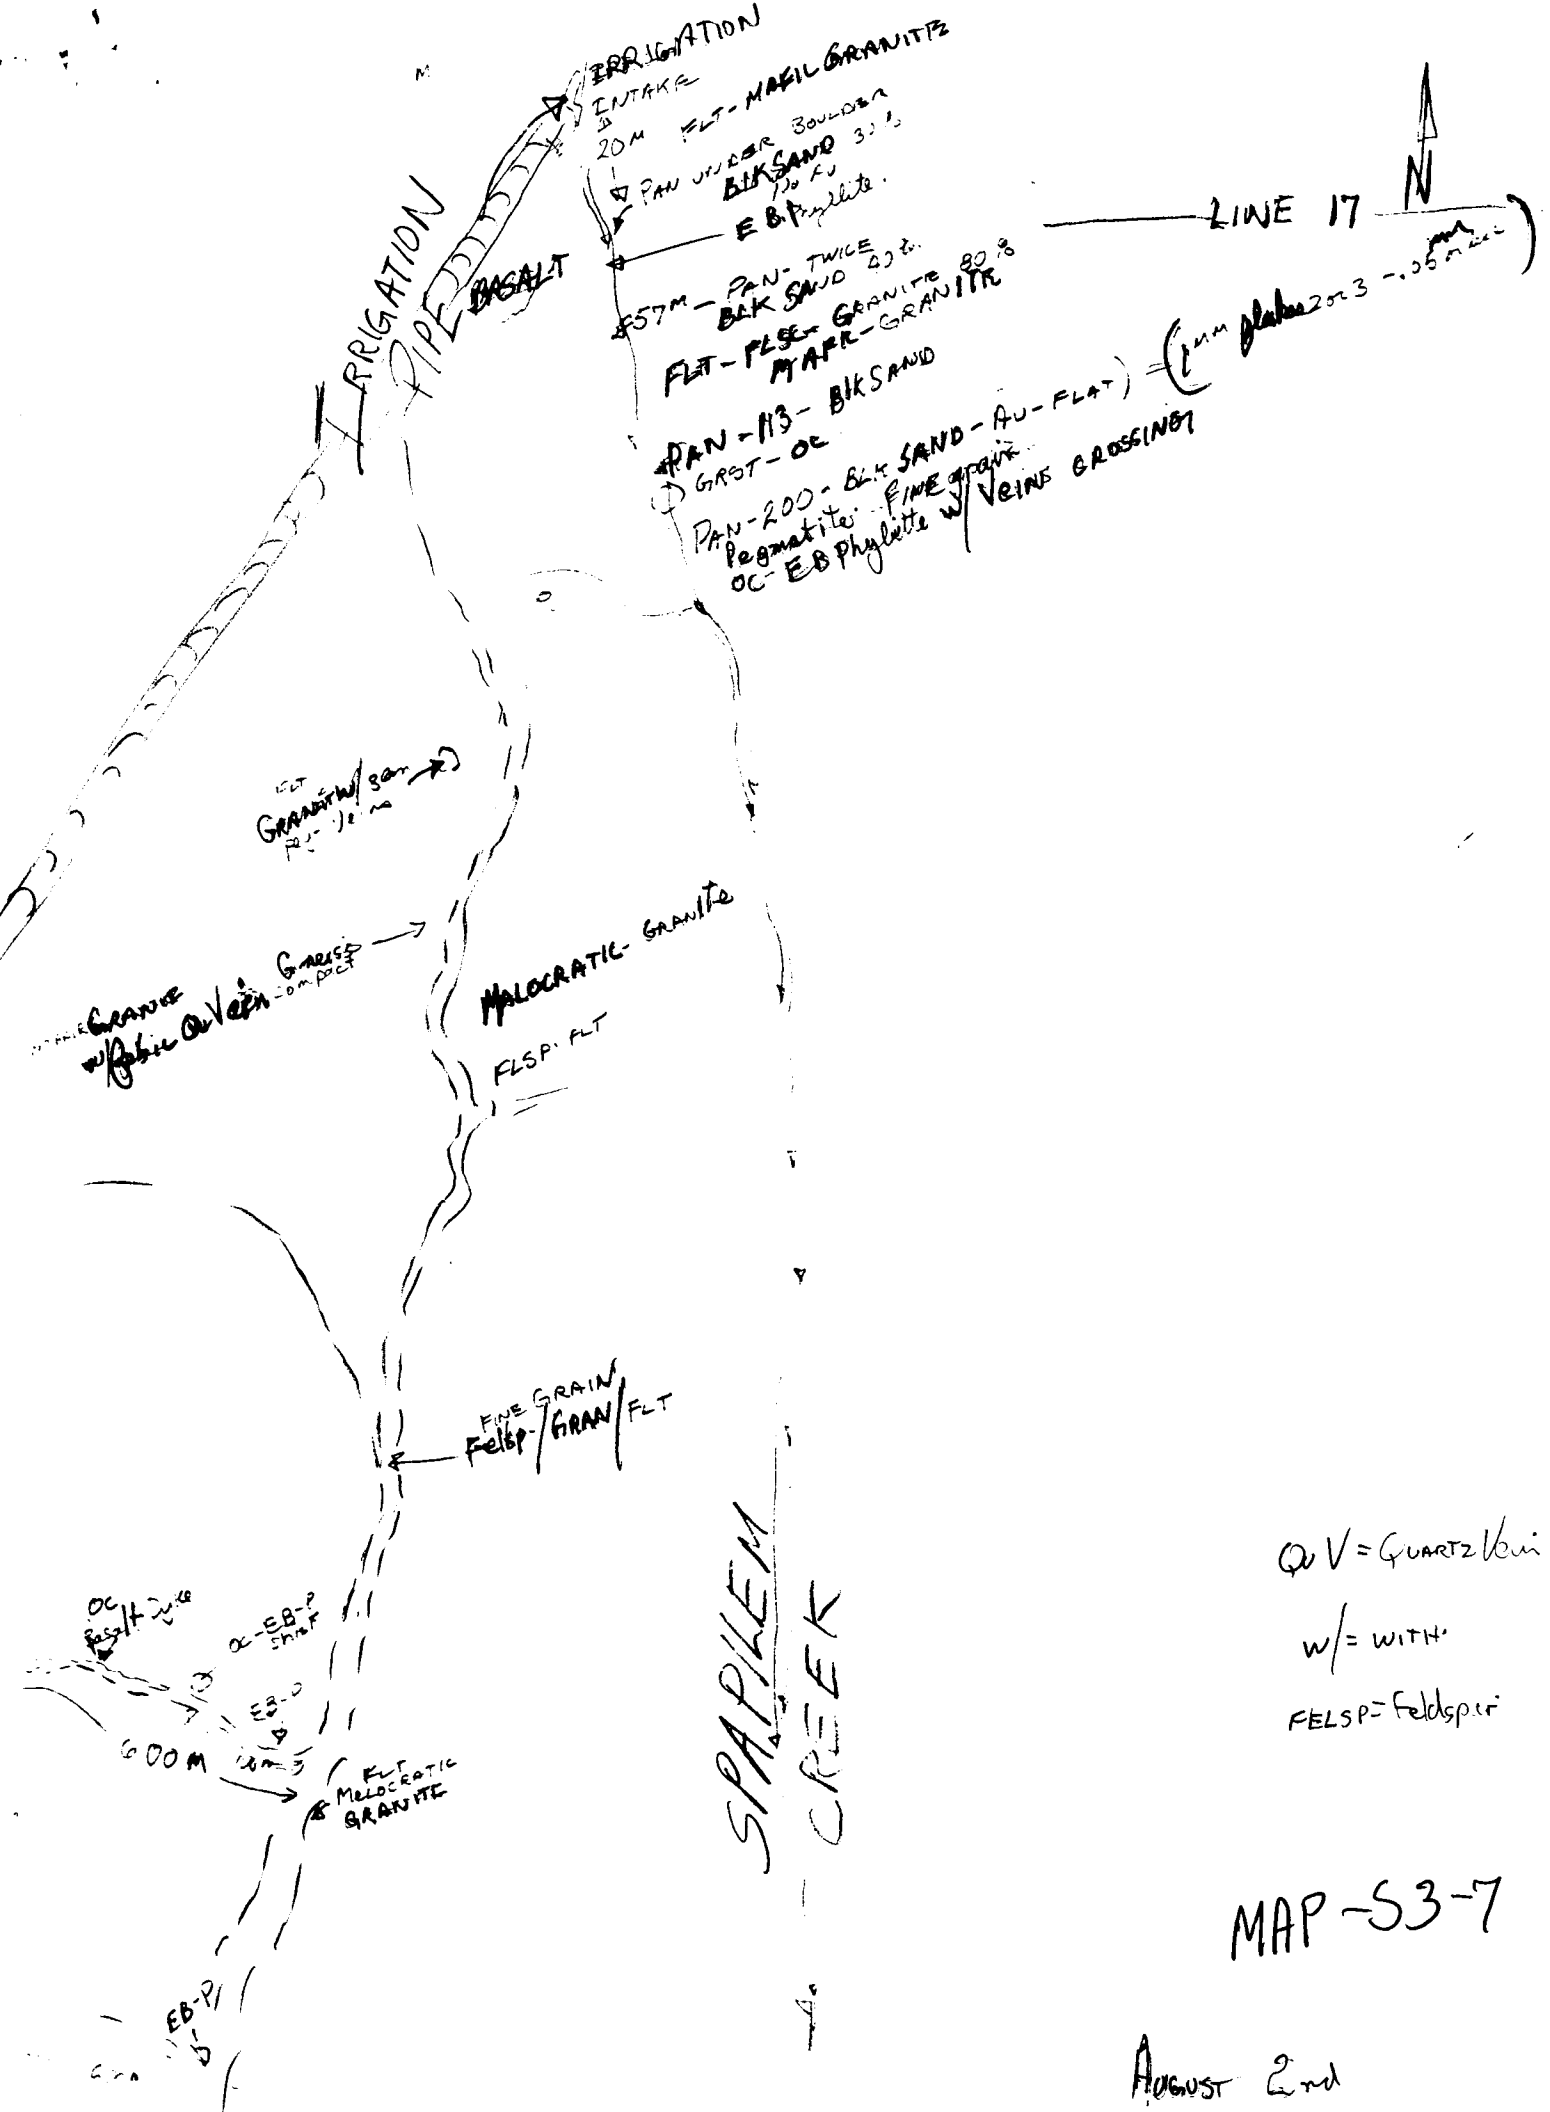 IRRIGATION
INTAKE
20M
FLT-MAFIC GRANITE
PAN UNDER BOULDER
BLKSAND 30%
EB.Phyllite.
LINE 17
N
IRRIGATION
PIPE
BASALT
57M - PAN - TWICE
BLK SAND 40%
FLT - FLSC - GRANITE 80%
MAFR - GRANITE
PAN - 113 - BLKSAND
GRST - OC
PAN-200 - BLK SAND - AU - FLAT) = (1mm flakes 2 or 3 - .05
Pegmatite. FINE grain
OC - EB Phyllite w/ Veins CROSSING
FLT
GRANITE w/ 3cm
GRANITE
w/ QuVein
Gneiss
compact
MALOCRATIC - GRANIte
FLSP. FLT
FINE GRAIN
Felsp-/GRAN/FLT
OC
Basalt Dyke
OC-EB-P
EB-P
600M
FLT
MeLOCRATIC
GRANITE
SPAPILEM
CREEK
Qu V = QUARTZ Vein
w/ = WITH
FELSP = Feldspar
MAP-S3-7
EB-P
AUGUST 2nd